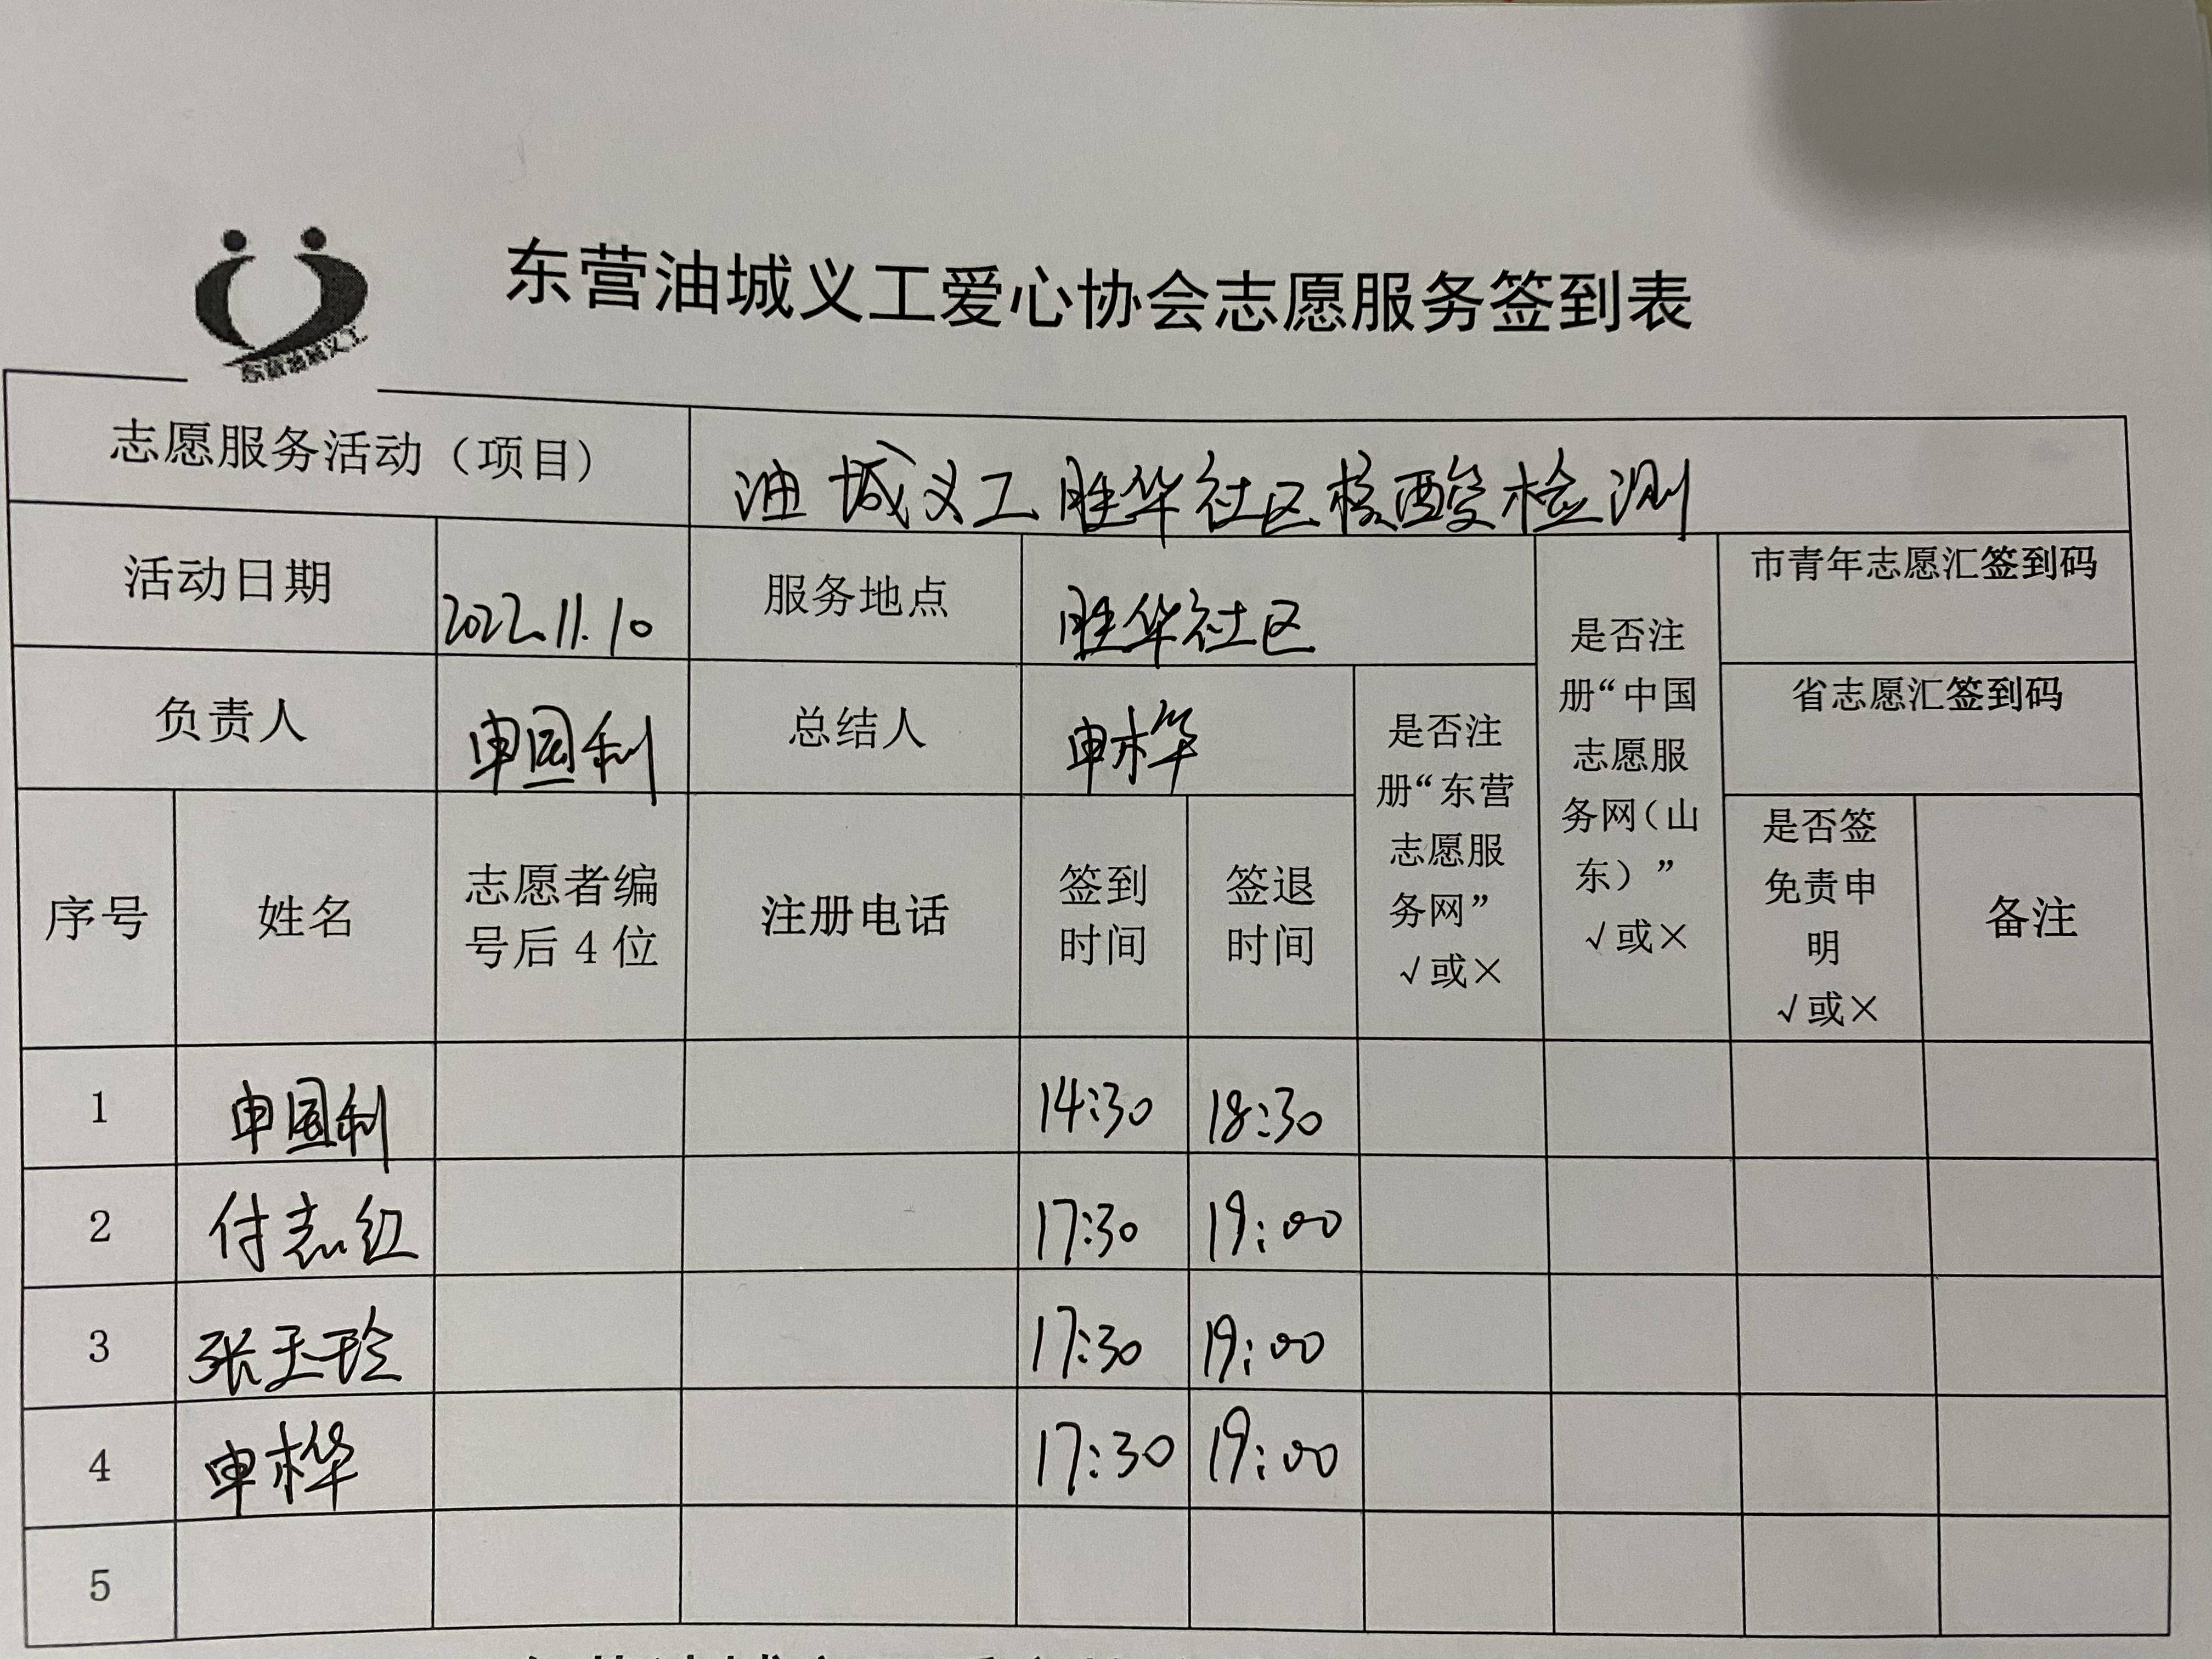 东营油城义工爱心协会志愿服务签到表
东营油城义工
志愿服务活动（项目） 油城义工胜华社区核酸检测
活动日期 2022.11.10 服务地点 胜华社区 市青年志愿汇签到码
负责人 申国利 总结人 申桦 省志愿汇签到码
是否注
册“东营
志愿服
务网”
√或×
是否注
册“中国
志愿服
务网（山
东）”
√或×
序号 姓名
志愿者编
号后4位
注册电话
签到
时间
签退
时间
是否签
免责申
明
√或×
备注
1 申国利 14:30 18:30
2 付志红 17:30 19:00
3 张玉玲 17:30 19:00
4 申桦 17:30 19:00
5